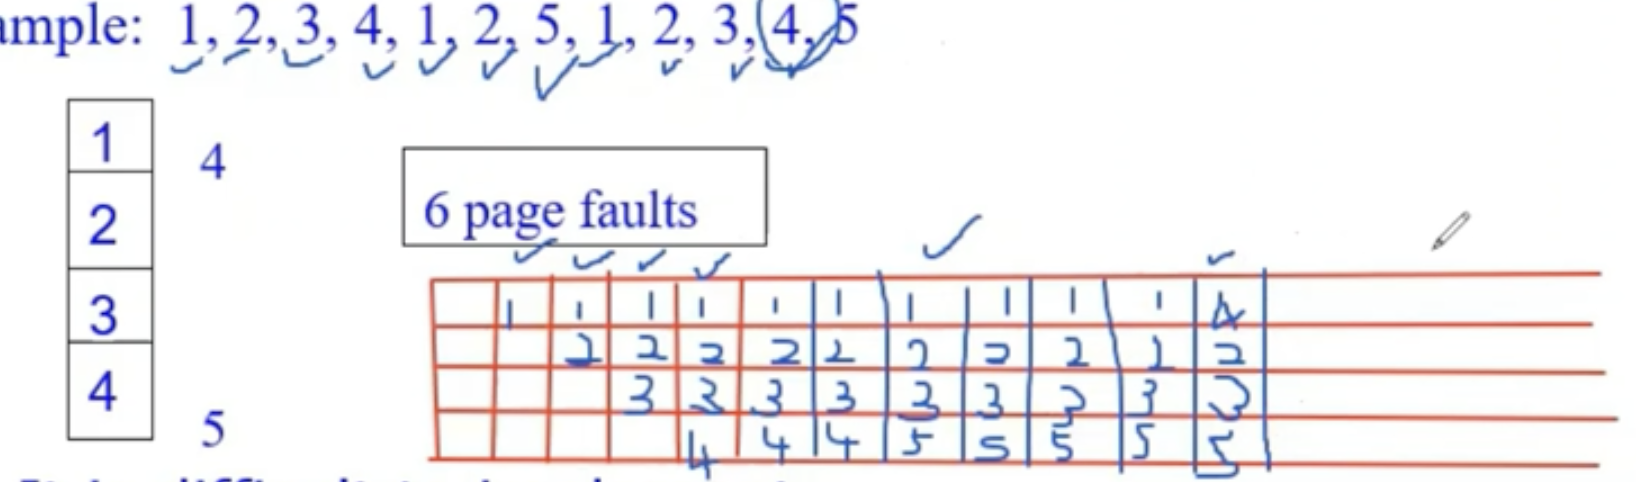 ample: 1, 2, 3, 4, 1, 2, 5, 1, 2, 3, 4, 5
1
4
2
6 page faults
3
4
5
1 1 1 1 1 1 1 1 1 1 4
2 2 2 2 2 2 2 2 2 2
3 3 3 3 3 3 3 3 3
4 4 4 5 5 5 5 5